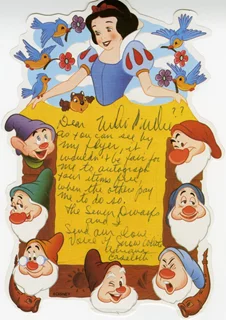 Dear
? ?
as you can see by
my flyer, it
wouldn't be fair for
me to autograph
your items free,
when the others pay
me to do so.
The Seven Dwarfs
and I
Send our love
Voice of Snow White
Adriana
Caselotti